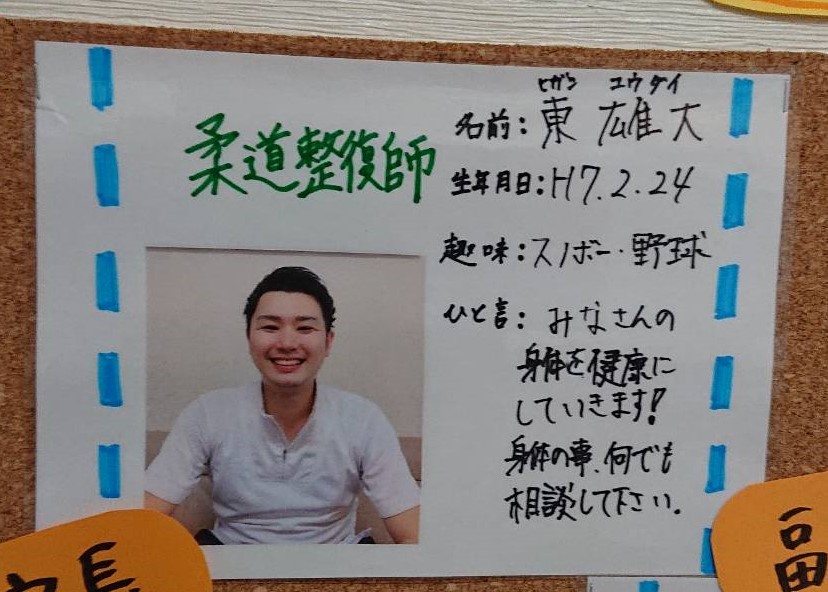 柔道整復師
ヒガシ ユウダイ
名前：東 雄大
生年月日：H7.2.24
趣味：スノボー・野球
ひと言：みなさんの
身体を健康に
していきます！
身体の事、何でも
相談して下さい。
長
副